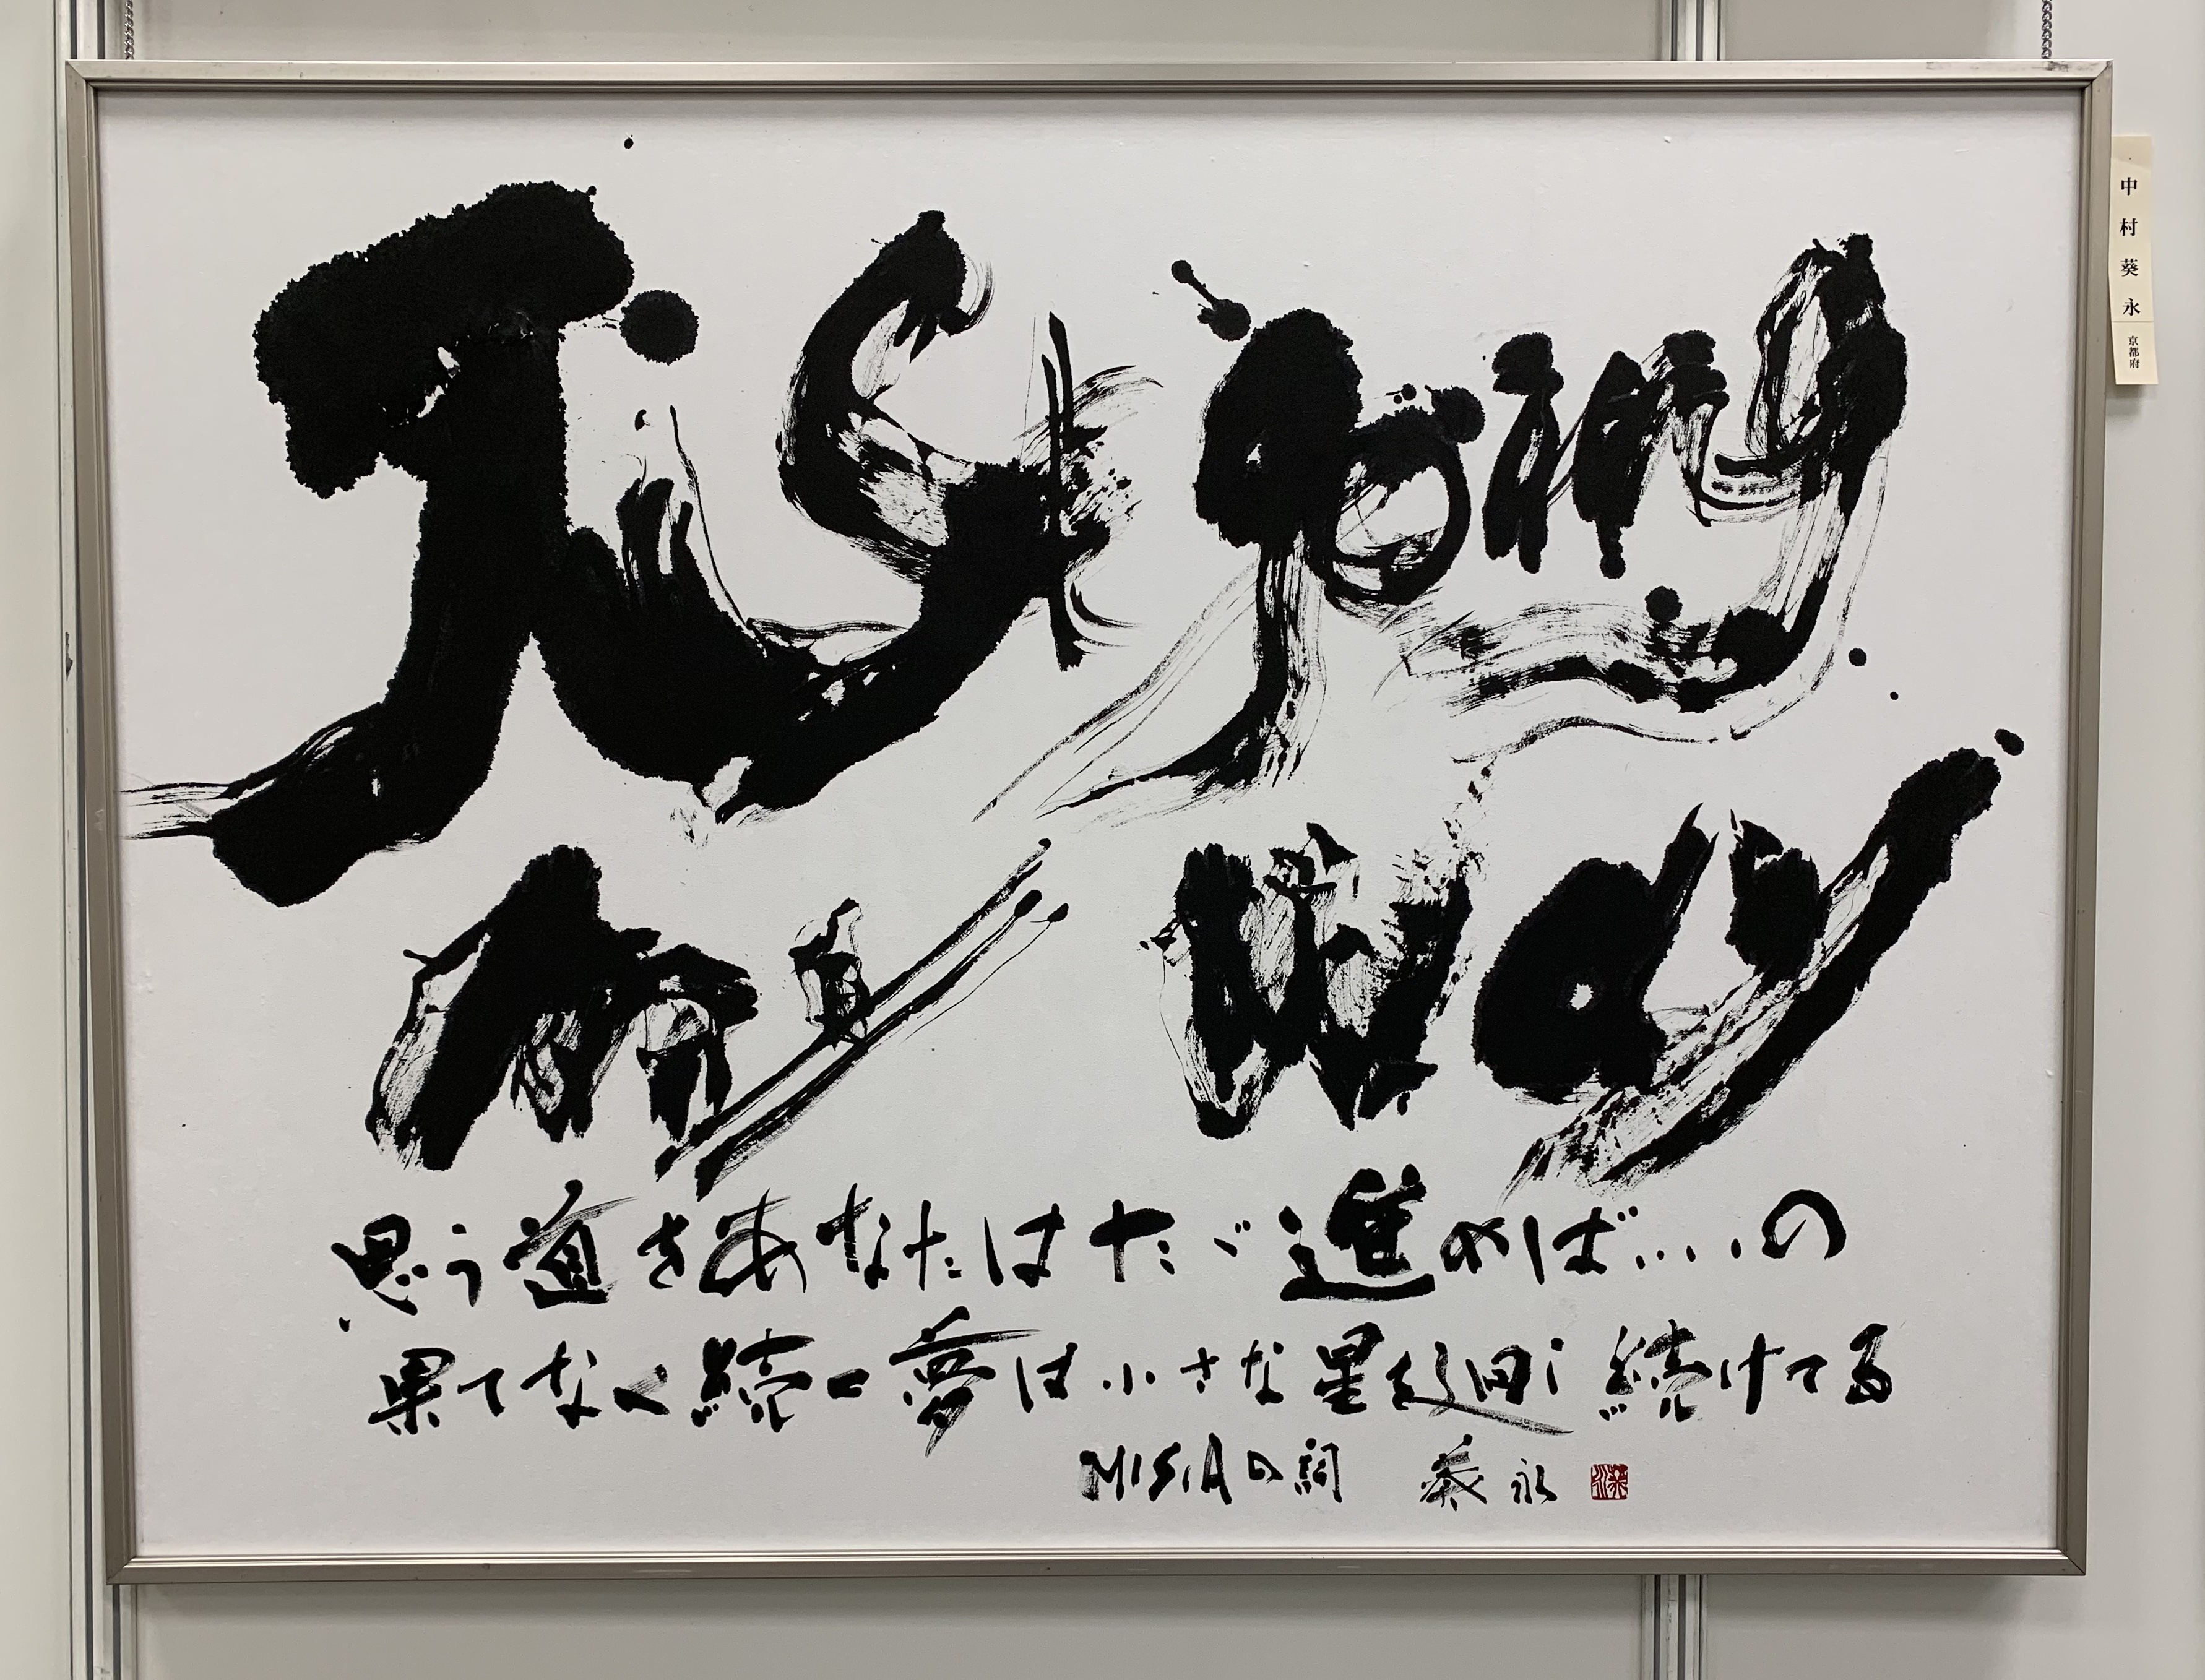 Just going
my way
思う道をあなたはただ進めば....の
果てなく続く夢は小さな星を廻し続けてる
MISIAの詞 葵永
中村葵永 京都府